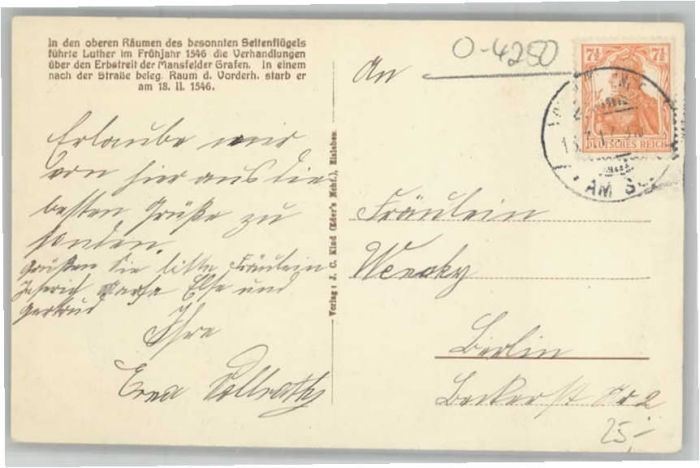 In den oberen Räumen des besonnten Seitenflügels
führte Luther im Frühjahr 1546 die Verhandlungen
über den Erbstreit der Mansfelder Grafen. In einem
nach der Straße beleg. Raum d. Vorderh. starb er
am 18. II. 1546.
Erlaube mir
von hier aus die
besten Grüße zu
senden.
Grüßen Sie bitte Fräulein
Else und
Gertrud
Ihre
Erna Vollrath
Verlag: J. C. Kind (Eder's Nchf.), Eisleben.
O-4250
An
7½ 7½
DEUTSCHES REICH
AM S
Fräulein
Berlin
Beckerst Nr 2
25,-